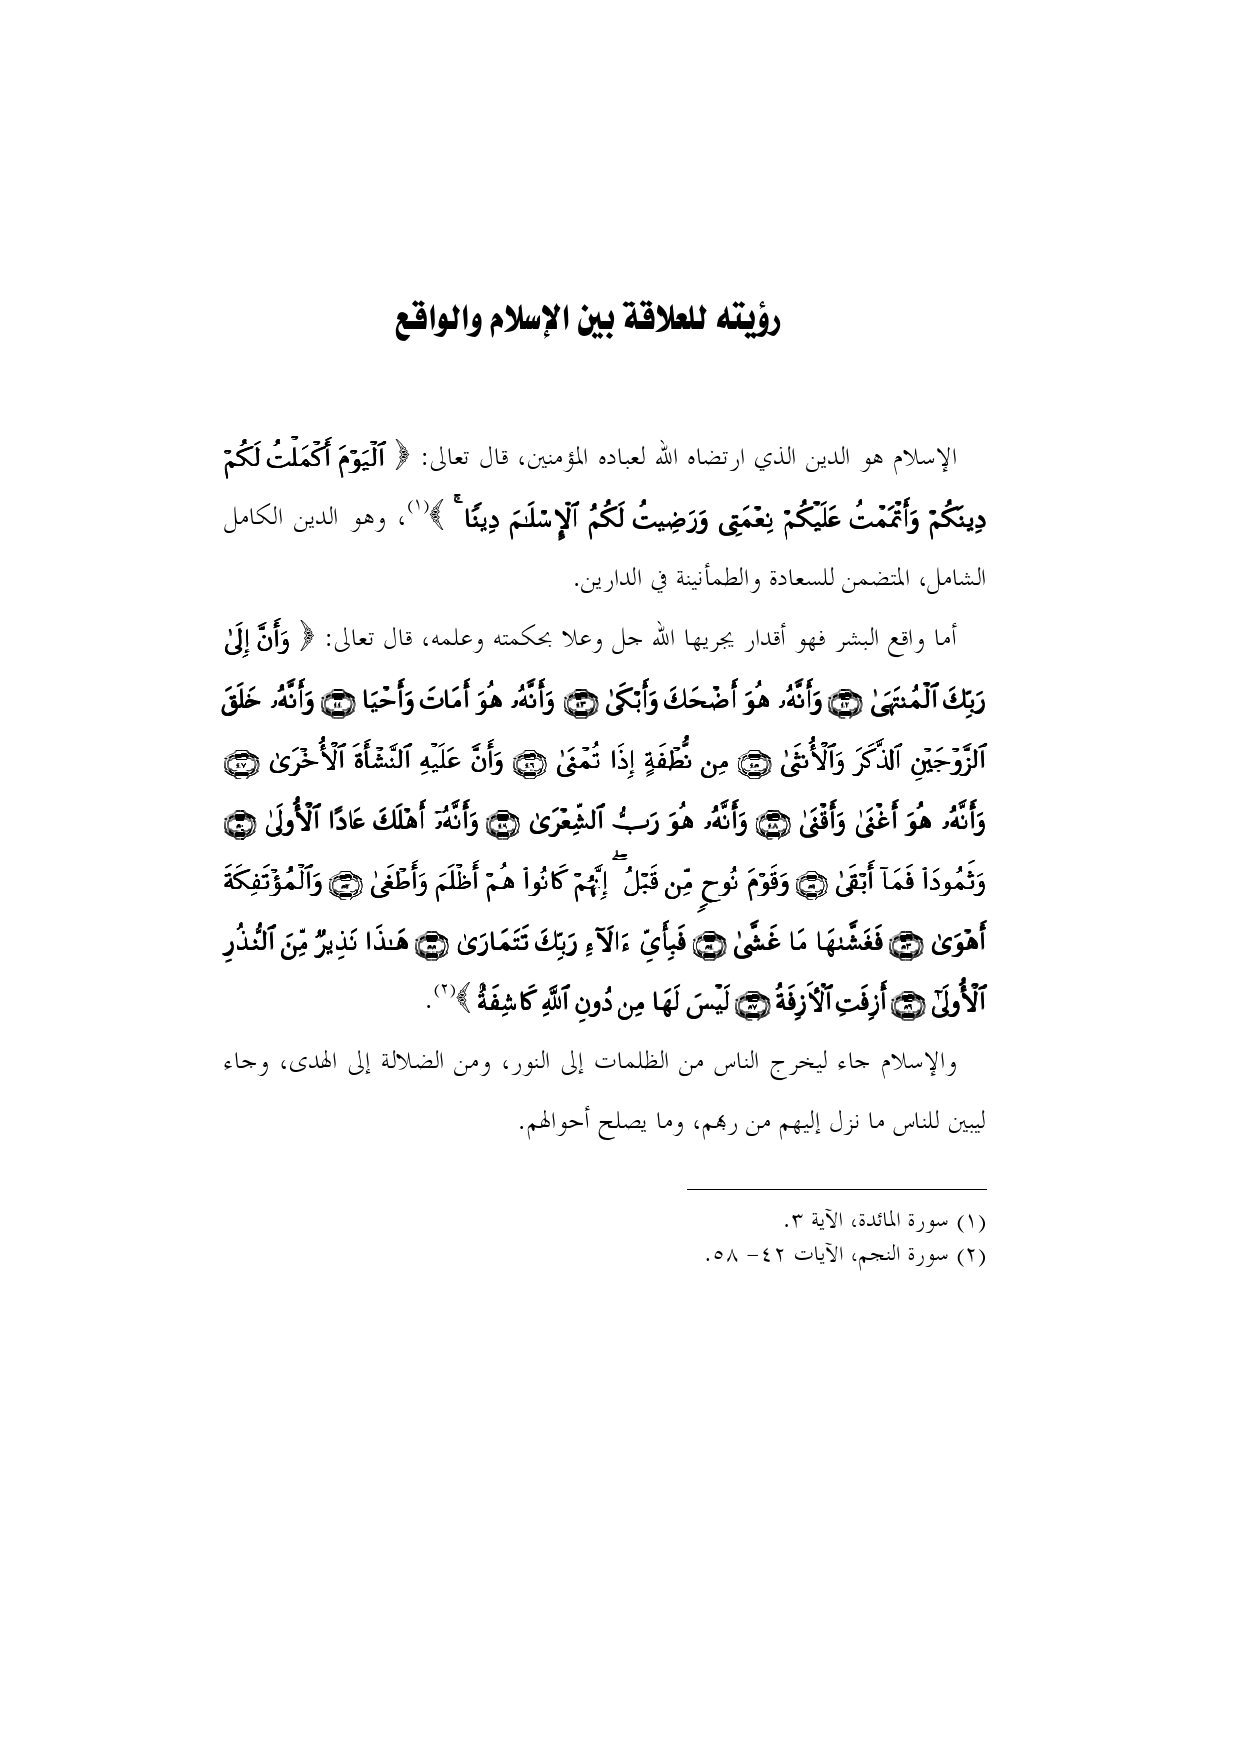 رؤيته للعلاقة بين الإسلام والواقع
الإسلام هو الدين الذي ارتضاه الله لعباده المؤمنين، قال تعالى: ﴿ ٱلْيَوْمَ أَكْمَلْتُ لَكُمْ
دِينَكُمْ وَأَتْمَمْتُ عَلَيْكُمْ نِعْمَتِى وَرَضِيتُ لَكُمُ ٱلْإِسْلَـٰمَ دِينًا ۚ ﴾(١)، وهو الدين الكامل
الشامل، المتضمن للسعادة والطمأنينة في الدارين.
أما واقع البشر فهو أقدار يجريها الله جل وعلا بحكمته وعلمه، قال تعالى: ﴿ وَأَنَّ إِلَىٰ
رَبِّكَ ٱلْمُنتَهَىٰ ٤٢ وَأَنَّهُۥ هُوَ أَضْحَكَ وَأَبْكَىٰ ٤٣ وَأَنَّهُۥ هُوَ أَمَاتَ وَأَحْيَا ٤٤ وَأَنَّهُۥ خَلَقَ
ٱلزَّوْجَيْنِ ٱلذَّكَرَ وَٱلْأُنثَىٰ ٤٥ مِن نُّطْفَةٍ إِذَا تُمْنَىٰ ٤٦ وَأَنَّ عَلَيْهِ ٱلنَّشْأَةَ ٱلْأُخْرَىٰ ٤٧
وَأَنَّهُۥ هُوَ أَغْنَىٰ وَأَقْنَىٰ ٤٨ وَأَنَّهُۥ هُوَ رَبُّ ٱلشِّعْرَىٰ ٤٩ وَأَنَّهُۥٓ أَهْلَكَ عَادًا ٱلْأُولَىٰ ٥٠
وَثَمُودَا۟ فَمَآ أَبْقَىٰ ٥١ وَقَوْمَ نُوحٍ مِّن قَبْلُ ۖ إِنَّهُمْ كَانُوا۟ هُمْ أَظْلَمَ وَأَطْغَىٰ ٥٢ وَٱلْمُؤْتَفِكَةَ
أَهْوَىٰ ٥٣ فَغَشَّىٰهَا مَا غَشَّىٰ ٥٤ فَبِأَىِّ ءَالَآءِ رَبِّكَ تَتَمَارَىٰ ٥٥ هَـٰذَا نَذِيرٌ مِّنَ ٱلنُّذُرِ
ٱلْأُولَىٰٓ ٥٦ أَزِفَتِ ٱلْـَٔازِفَةُ ٥٧ لَيْسَ لَهَا مِن دُونِ ٱللَّهِ كَاشِفَةٌ ﴾(٢).
والإسلام جاء ليخرج الناس من الظلمات إلى النور، ومن الضلالة إلى الهدى، وجاء
ليبين للناس ما نزل إليهم من ربهم، وما يصلح أحوالهم.
(١) سورة المائدة، الآية ٣.
(٢) سورة النجم، الآيات ٤٢- ٥٨.